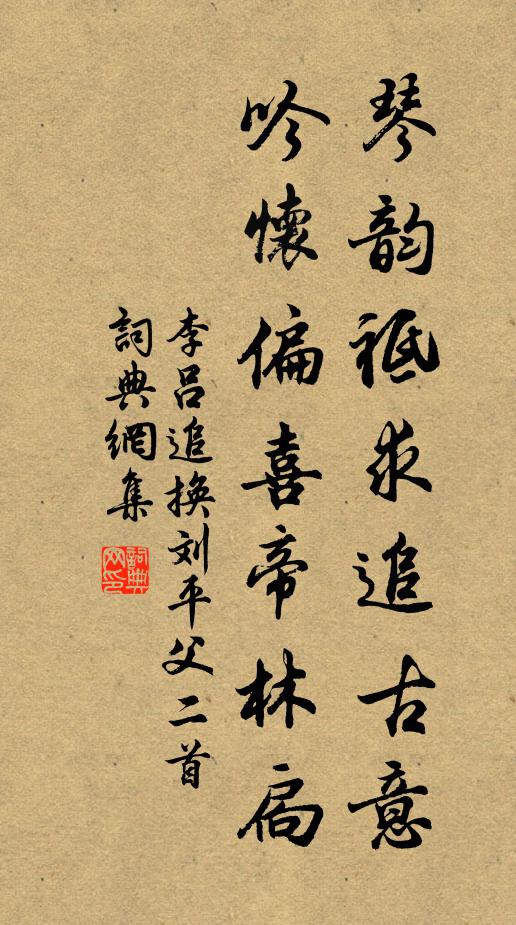 琴韵祗求追古意
吟懷偏喜帝林扃
李吕追换刘平父二首
詞典網集
詞典网印